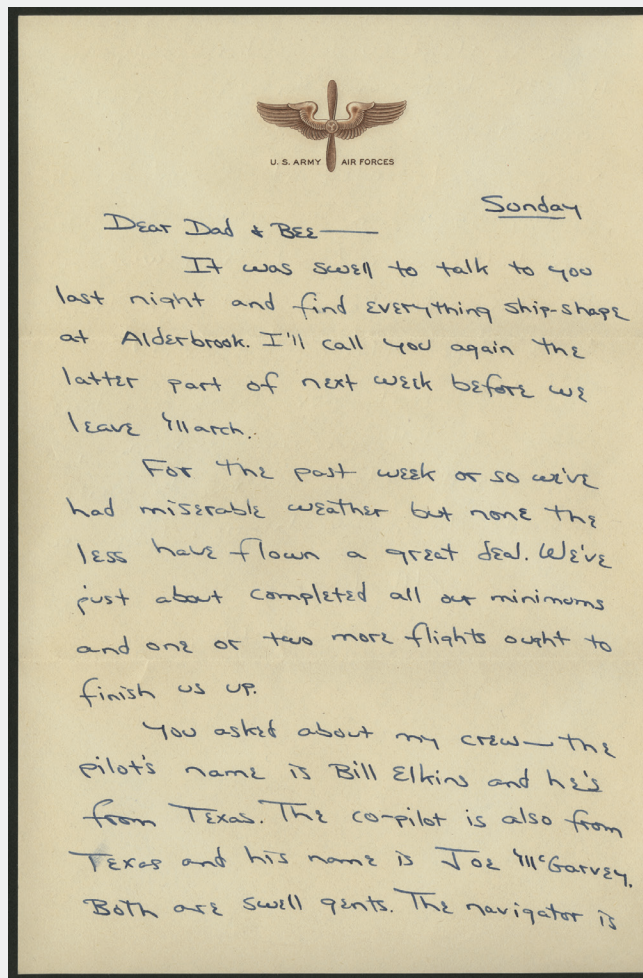 U. S. ARMY AIR FORCES
Sunday
Dear Dad & Bee—
It was swell to talk to you
last night and find everything ship-shape
at Alderbrook. I'll call you again the
latter part of next week before we
leave March.
For the past week or so we've
had miserable weather but none the
less have flown a great deal. We've
just about completed all our minimums
and one or two more flights ought to
finish us up.
You asked about my crew— the
pilot's name is Bill Elkins and he's
from Texas. The co-pilot is also from
Texas and his name is Joe McGarvey.
Both are swell gents. The navigator is